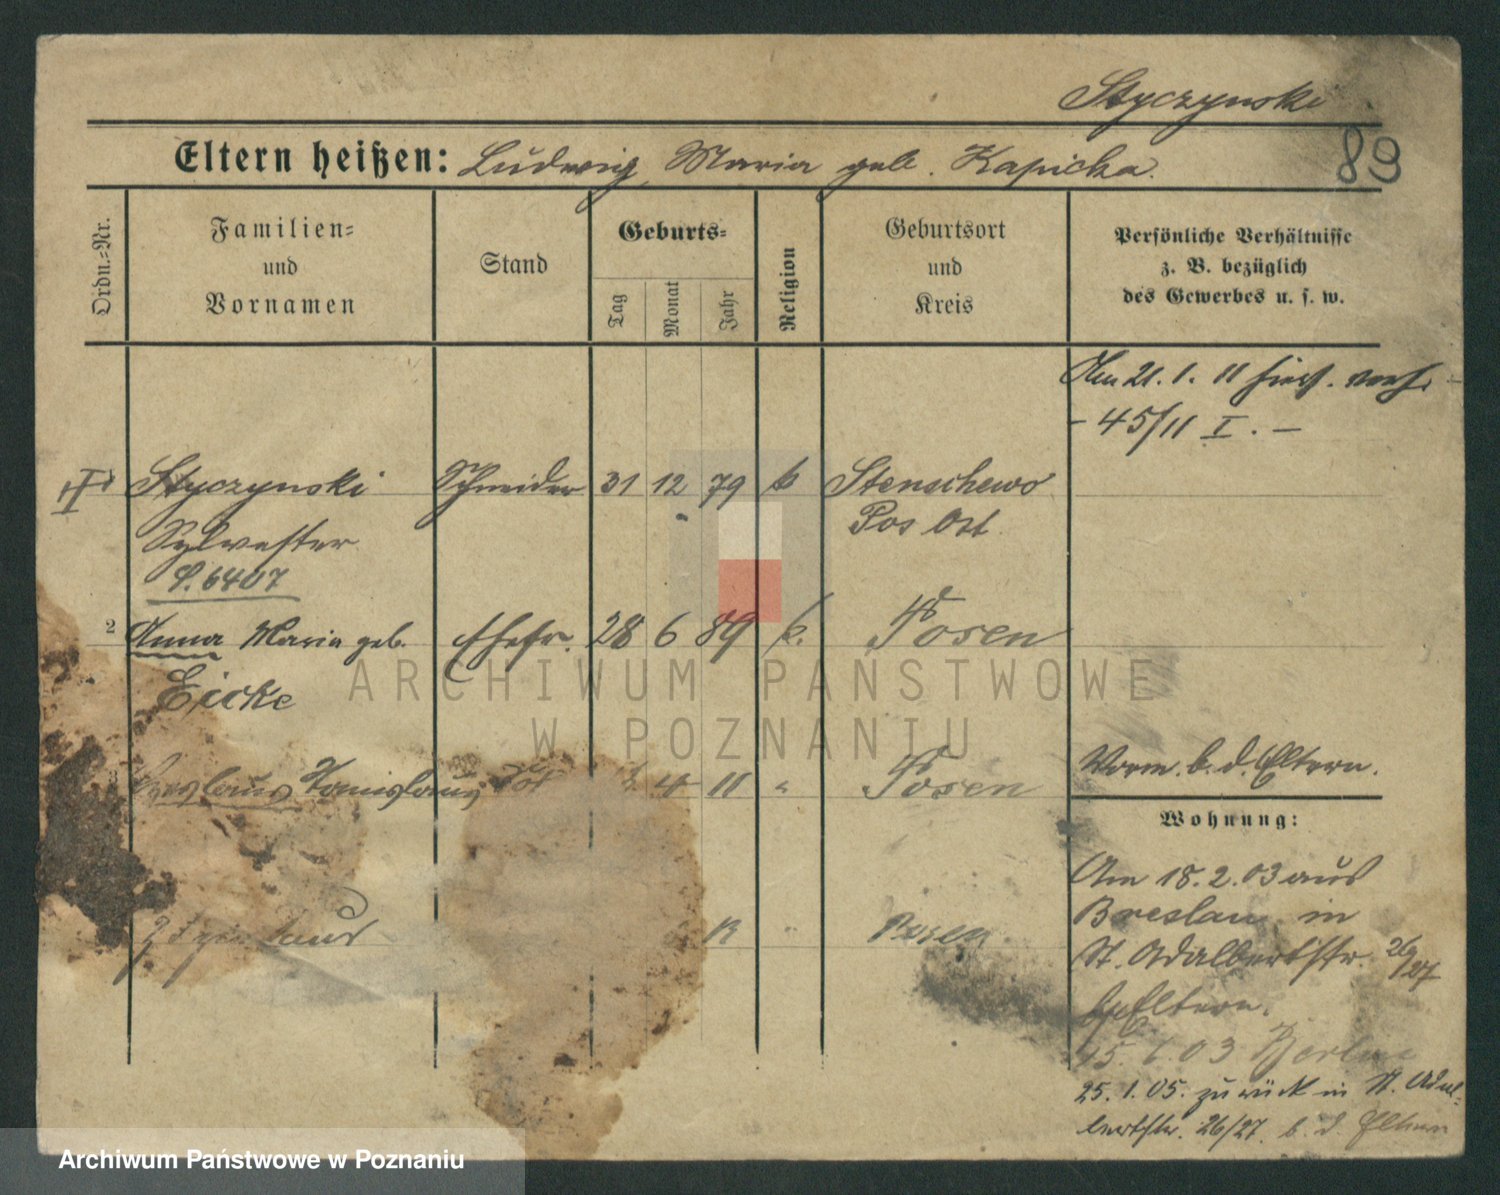 Styczynski
89
Eltern heißen: Ludwig, Maria geb. Kapicka.
Ordn.=Nr.
Familien=
und
Vornamen
Stand
Geburts=
Tag
Monat
Jahr
Religion
Geburtsort
und
Kreis
Persönliche Verhältnisse
z. B. bezüglich
des Gewerbes u. s. w.
Am 21. 1. 11 verh.
- 45/11 I. -
Styczynski Schneider 31 12 79 k Stenschewo
Sylvester Pos Ost
S. 6407
2 Anna Maria geb. Ehefr. 28 6 89 k. Posen
Eicke
Stanislaus 4 11 " Posen
Vorm. b. d. Eltern.
Wohnung:
Am 18. 2. 03 aus
Breslau in
St. Adalbertstr. 26/27
Eltern.
Posen
03 Berlin
25. 1. 05. zurück in St. Adal=
bertstr. 26/27. b. d. Eltern
ARCHIWUM PAŃSTWOWE
W POZNANIU
Archiwum Państwowe w Poznaniu